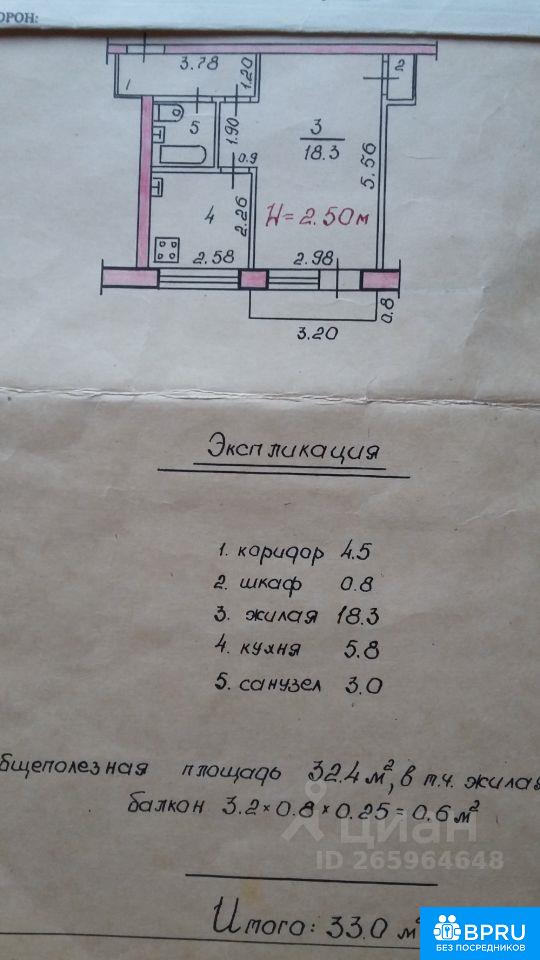 ОРОН:
3.78
1.20
2
1
5
1.90
3
18.3
5.56
0.9
4
2.26
H=2.50м
2.58
2.98
0.8
3.20
Экспликация
1. коридор 4.5
2. шкаф 0.8
3. жилая 18.3
4. кухня 5.8
5. санузел 3.0
бщеполезная площадь 32.4 м², в т.ч. жилая
балкон 3.2×0.8×0.25=0.6м²
циан
ID 265964648
Итого: 33.0 м²
BPRU
БЕЗ ПОСРЕДНИКОВ